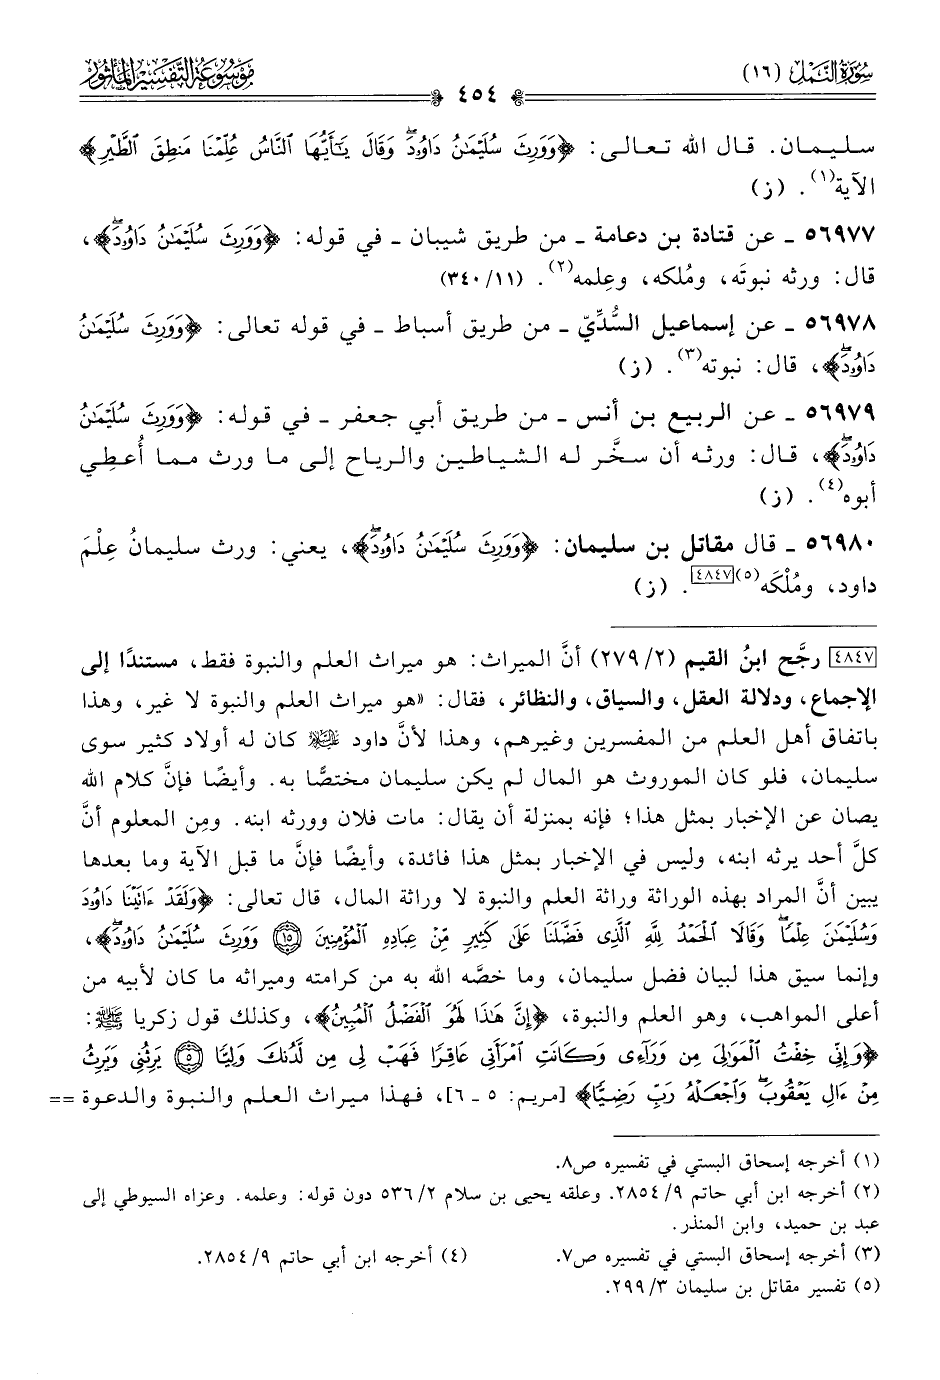 سُورَةُ النَّمْل (١٦)
مَوْسُوعَةُ التَّفْسِيرِ المَأْثُور
٤٥٤
سليمان. قال الله تعالى: ﴿وَوَرِثَ سُلَيْمَٰنُ دَاوُۥدَۖ وَقَالَ يَٰٓأَيُّهَا ٱلنَّاسُ عُلِّمْنَا مَنطِقَ ٱلطَّيْرِ﴾
الآية(١). (ز)
٥٦٩٧٧ ـ عن قتادة بن دعامة ـ من طريق شيبان ـ في قوله: ﴿وَوَرِثَ سُلَيْمَٰنُ دَاوُۥدَۖ﴾،
قال: ورثه نبوتَه، ومُلكه، وعِلمه(٢). (٣٤٠/١١)
٥٦٩٧٨ ـ عن إسماعيل السُّدِّيّ ـ من طريق أسباط ـ في قوله تعالى: ﴿وَوَرِثَ سُلَيْمَٰنُ
دَاوُۥدَۖ﴾، قال: نبوته(٣). (ز)
٥٦٩٧٩ ـ عن الربيع بن أنس ـ من طريق أبي جعفر ـ في قوله: ﴿وَوَرِثَ سُلَيْمَٰنُ
دَاوُۥدَۖ﴾، قال: ورثه أن سخَّر له الشياطين والرياح إلى ما ورث مما أُعطِي
أبوه(٤). (ز)
٥٦٩٨٠ ـ قال مقاتل بن سليمان: ﴿وَوَرِثَ سُلَيْمَٰنُ دَاوُۥدَۖ﴾، يعني: ورث سليمانُ عِلْمَ
داود، ومُلْكَه(٥)[٤٨٤٧]. (ز)
[٤٨٤٧] رجَّح ابنُ القيم (٢٧٩/٢) أنَّ الميراث: هو ميراث العلم والنبوة فقط، مستندًا إلى
الإجماع، ودلالة العقل، والسياق، والنظائر، فقال: «هو ميراث العلم والنبوة لا غير، وهذا
باتفاق أهل العلم من المفسرين وغيرهم، وهذا لأنَّ داود عليه السلام كان له أولاد كثير سوى
سليمان، فلو كان الموروث هو المال لم يكن سليمان مختصًّا به. وأيضًا فإنَّ كلام الله
يصان عن الإخبار بمثل هذا؛ فإنه بمنزلة أن يقال: مات فلان وورثه ابنه. ومِن المعلوم أنَّ
كلَّ أحد يرثه ابنه، وليس في الإخبار بمثل هذا فائدة، وأيضًا فإنَّ ما قبل الآية وما بعدها
يبين أنَّ المراد بهذه الوراثة وراثة العلم والنبوة لا وراثة المال، قال تعالى: ﴿وَلَقَدْ ءَاتَيْنَا دَاوُۥدَ
وَسُلَيْمَٰنَ عِلْمًاۖ وَقَالَا ٱلْحَمْدُ لِلَّهِ ٱلَّذِى فَضَّلَنَا عَلَىٰ كَثِيرٍ مِّنْ عِبَادِهِ ٱلْمُؤْمِنِينَ ١٥ وَوَرِثَ سُلَيْمَٰنُ دَاوُۥدَۖ﴾،
وإنما سيق هذا لبيان فضل سليمان، وما خصَّه الله به من كرامته وميراثه ما كان لأبيه من
أعلى المواهب، وهو العلم والنبوة، ﴿إِنَّ هَٰذَا لَهُوَ ٱلْفَضْلُ ٱلْمُبِينُ﴾، وكذلك قول زكريا ﷺ:
﴿وَإِنِّى خِفْتُ ٱلْمَوَٰلِىَ مِن وَرَآءِى وَكَانَتِ ٱمْرَأَتِى عَاقِرًا فَهَبْ لِى مِن لَّدُنكَ وَلِيًّا ٥ يَرِثُنِى وَيَرِثُ
مِنْ ءَالِ يَعْقُوبَۖ وَٱجْعَلْهُ رَبِّ رَضِيًّا﴾ [مريم: ٥ ـ ٦]، فهذا ميراث العلم والنبوة والدعوة ==
(١) أخرجه إسحاق البستي في تفسيره ص٨.
(٢) أخرجه ابن أبي حاتم ٢٨٥٤/٩. وعلقه يحيى بن سلام ٥٣٦/٢ دون قوله: وعلمه. وعزاه السيوطي إلى
عبد بن حميد، وابن المنذر.
(٣) أخرجه إسحاق البستي في تفسيره ص٧.
(٤) أخرجه ابن أبي حاتم ٢٨٥٤/٩.
(٥) تفسير مقاتل بن سليمان ٢٩٩/٣.